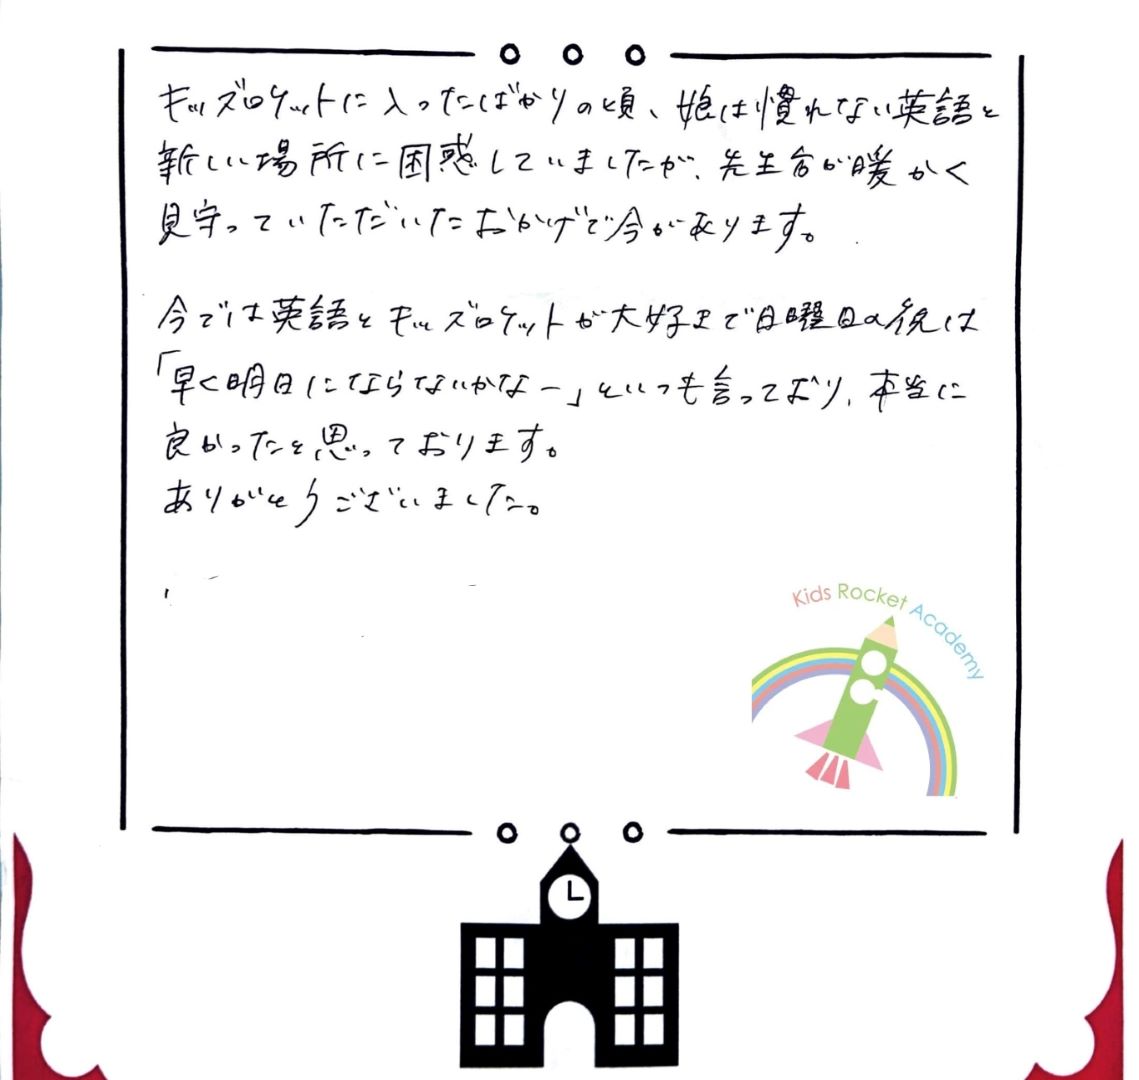 キッズロケットに入ったばかりの頃、娘は慣れない英語と
新しい場所に困惑していましたが、先生方が暖かく
見守っていただいたおかげで今があります。
今では英語とキッズロケットが大好きで日曜日の夜は
「早く明日にならないかなー」といつも言っており、本当に
良かったと思っております。
ありがとうございました。
Kids Rocket Academy